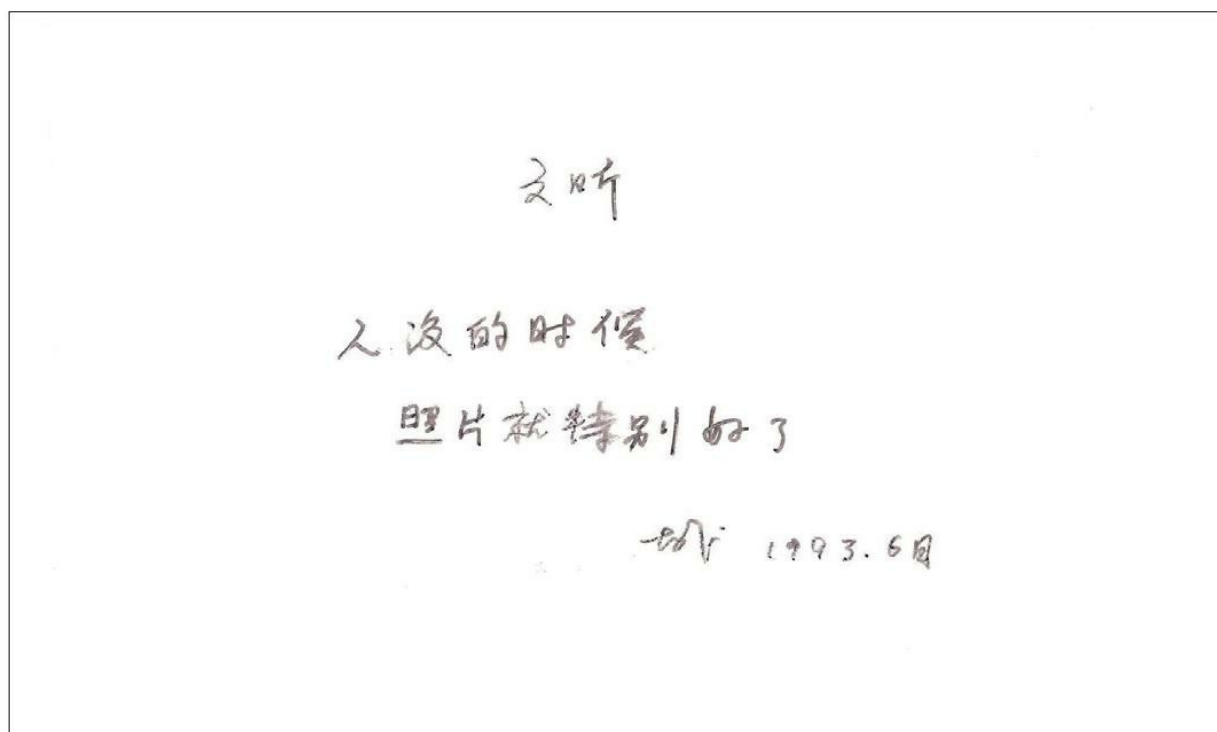 文昕
人没的时候
照片就特别好了
城 1993.6月